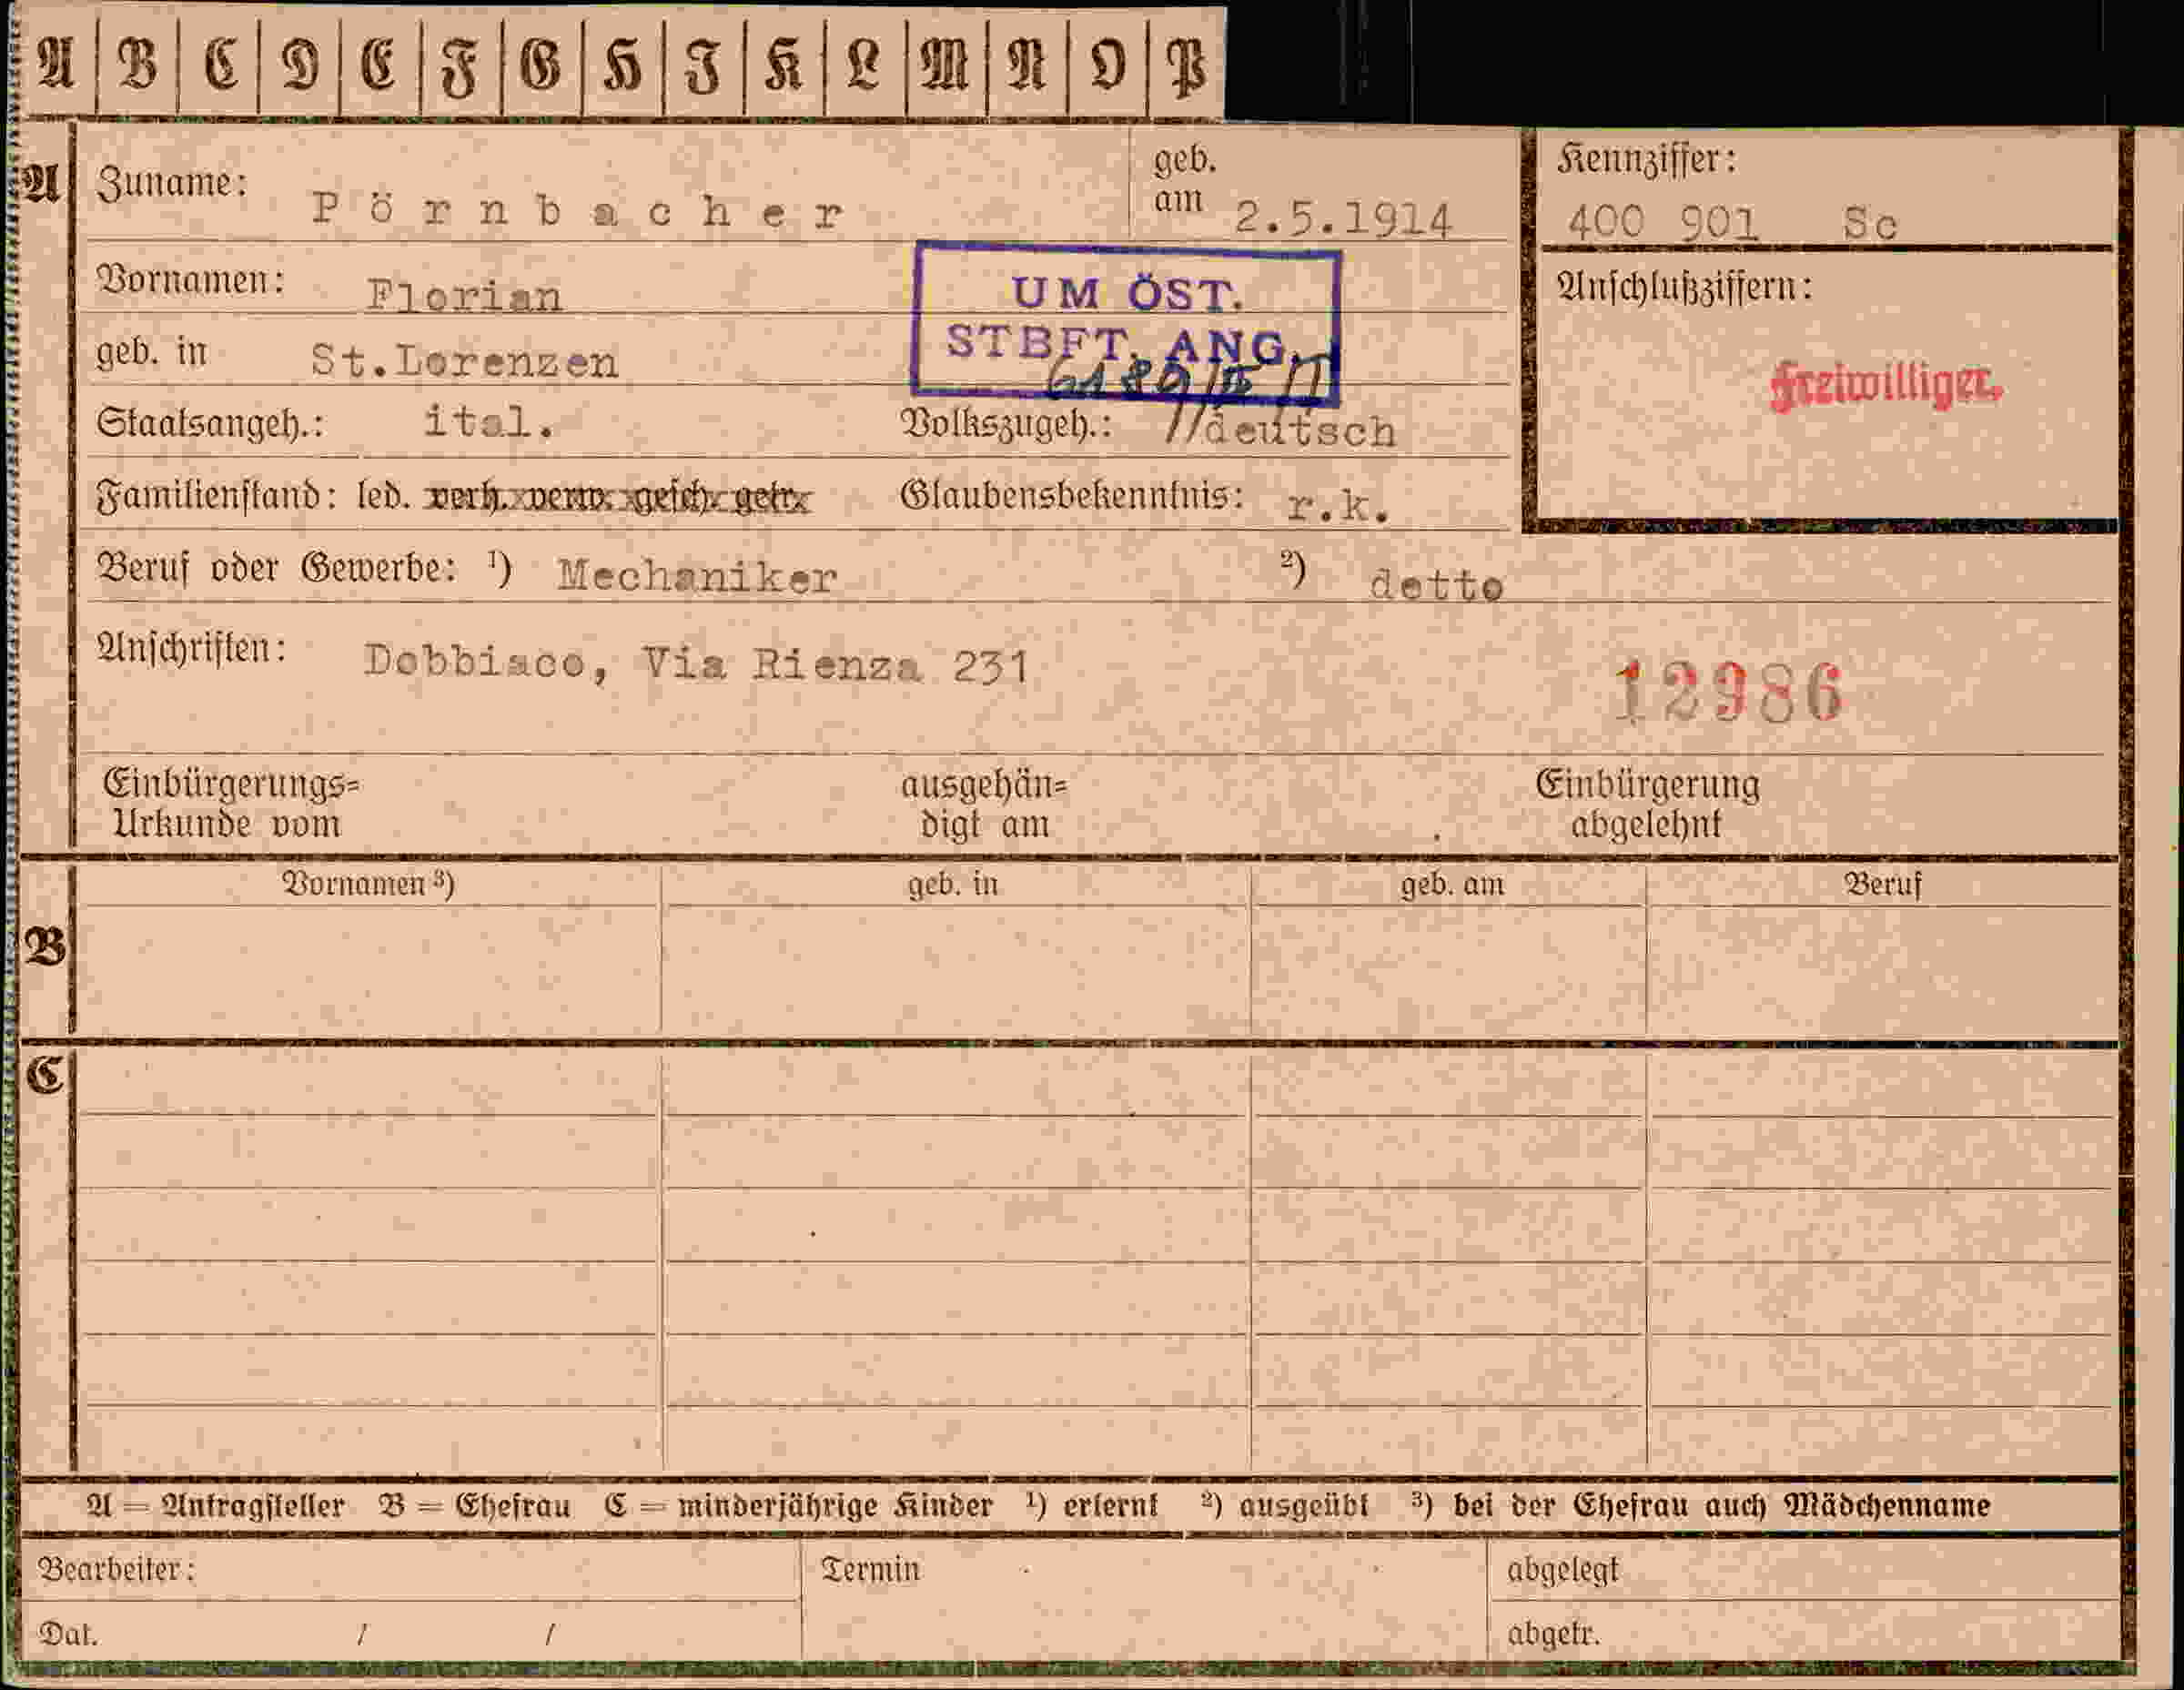 A B C D E F G H I K L M N O P
A Zuname: Pörnbacher geb. am 2.5.1914 Kennziffer: 400 901 Sc
Vornamen: Florian UM ÖST. Anschlußziffern:
geb. in St.Lorenzen STBFT. ANG. Freiwilliger
Staatsangeh.: ital. Volkszugeh.: deutsch
Familienstand: led. verh. verw. gesch. getr. Glaubensbekenntnis: r.k.
Beruf oder Gewerbe: ¹) Mechaniker ²) detto
Anschriften: Dobbiaco, Via Rienza 231
12986
Einbürgerungs= ausgehän= Einbürgerung
Urkunde vom digt am abgelehnt
Vornamen ³) geb. in geb. am Beruf
B
C
A = Antragsteller B = Ehefrau C = minderjährige Kinder ¹) erlernt ²) ausgeübt ³) bei der Ehefrau auch Mädchenname
Bearbeiter: Termin abgelegt
Dat. / / abgetr.